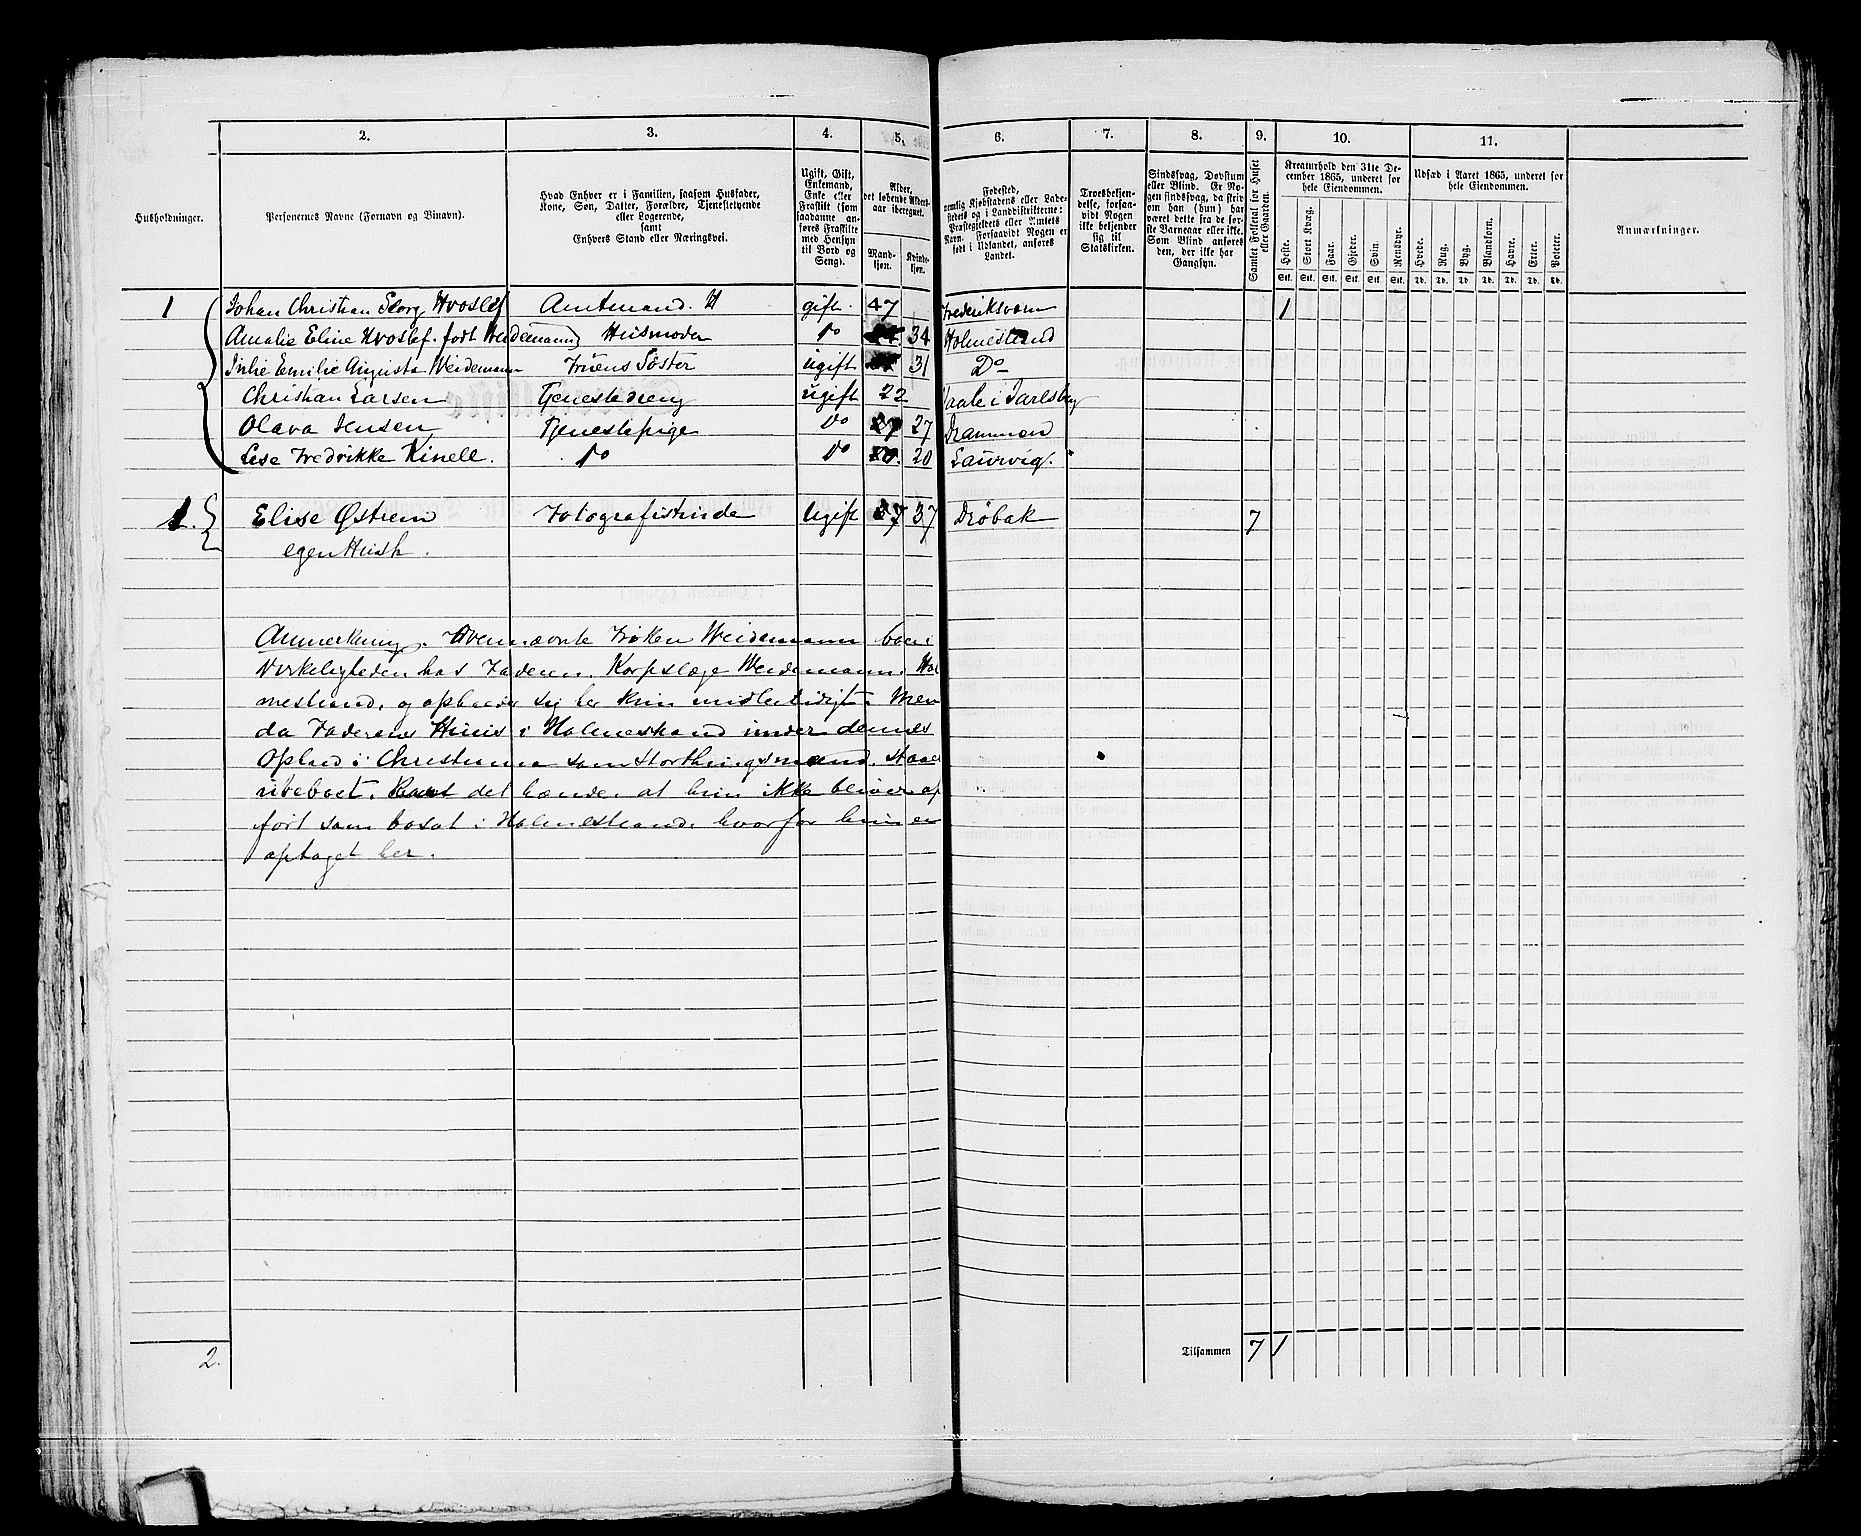 2. 3. 4. 5. 6. 7. 8. 9. 10. 11.
Husholdninger.
Personernes Navne (Fornavn og Tilnavn).
Hvad Enhver er i Familien, saasom Husfader,
Kone, Søn, Datter, Forældre, Tjenestetyende
eller Logerende,
samt
Enhvers Stand eller Næringsvei.
Ugift, Gift,
Enkemand,
Enke eller
Fraskilt (som
saadanne an-
føres Fraskilte
med Hensyn
til Bord og
Seng).
Alder,
det løbende Alders-
aar iberegnet.
Mand-
kjøn.
Kvinde-
kjøn.
Fødested,
nemlig Kjøbstadens eller Lade-
stedets og i Landdistrikterne:
Præstegjeldets eller Amtets
Navn. Forsaavidt Nogen er
født i Udlandet, anføres
Landet.
Troesbekjen-
delse, forsaa-
vidt Nogen
ikke bekjender
sig til
Statskirken.
Sindssvag, Døvstum
eller Blind. Er No-
gen sindssvag, da skriv
om han (hun) har
været dette fra de før-
ste Barneaar eller ikke.
Som Blind anføres
den, der ikke har
Gangsyn.
Samlet Folketal for Huset
eller Gaarden.
Kreaturhold den 31te De-
cember 1865, underet for
hele Eiendommen.
Heste. Stort Kvæg. Faar. Gjeder. Svin. Rensdyr.
Stk. Stk. Stk. Stk. Stk. Stk.
Udsæd i Aaret 1865, underet for
hele Eiendommen.
Hvede. Rug. Byg. Blandkorn. Havre. Erter. Poteter.
Td. Td. Td. Td. Td. Td. Td.
Anmærkninger.
1 Johan Christian Georg Hvoslef Amtmand. H gift. 47 Frederiksværn 1
Amalie Eline Hvoslef. født Weidemann Husmoder Do 34 Holmestrand
Julie Emilie Augusta Weidemann Fruens Søster ugift 31 Do
Christian Larsen Tjenestedreng ugift 22 Vaale i Jarlsberg
Olava Jensen Tjenestepige Do 27 Drammen
Lise Fredrikke Kinell. Do Do 20 Laurvig.
1. Elise Østrem Fotografistinde Ugift 37 Drøbak 7
egen Hush.
Anmerkning. Ovennævnte Frøken Weidemann boer i
Virkeligheden hos Faderen, Korpslæge Weidemann i Hol
mestrand, og opholder sig her kun midlertidigt. Men
da Faderens Huus i Holmestrand under dennes
Ophold i Christiania som Storthingsmand staaer
ubeboet, kunde det hænde, at hun ikke bliver op
ført som bosat i Holmestrand, hvorfor hun er
optaget her.
2. Tilsammen 7 1